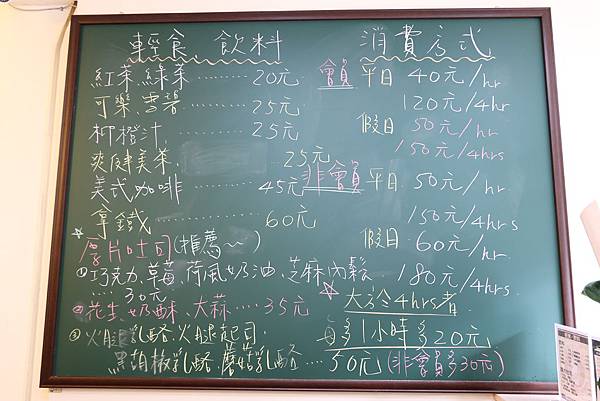 輕食、飲料
紅茶、綠茶......... 20元
可樂、雪碧......... 25元
柳橙汁......... 25元
爽健美茶. 25元
美式咖啡......... 45元
拿鐵......... 60元
☆厚片吐司(推薦~)
①巧克力、草莓、荷風奶油、芝麻肉鬆
...... 30元
②花生、奶酥、大蒜.... 35元
③火腿乳酪、火腿起司、
黑胡椒乳酪、蘑菇乳酪.... 50元
消費方式
會員 平日 40元/hr
120元/4hr
假日 50元/hr
150元/4hrs
非會員 平日 50元/hr
150元/4hrs
假日 60元/hr
180元/4hrs
☆大於4hrs者
每多1小時多20元
(非會員多30元)